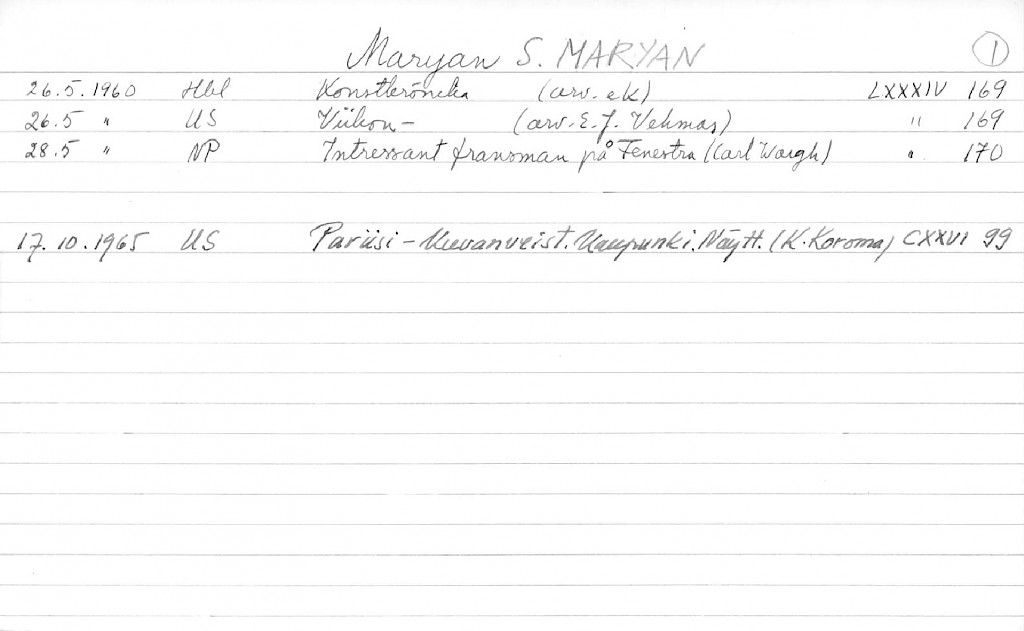 Maryan S. MARYAN 1
26.5.1960 Hbl Konstkrönika (arv. ek) LXXXIV 169
26.5 " US Viikon- (arv. E.J. Vehmas) " 169
28.5 " NP Intressant fransman på Fenestra (Carl Wargh) " 170
17.10.1965 US Pariisi - Kuvanveist. Kaupunki. Näytt. (K. Koroma) CXXVI 99